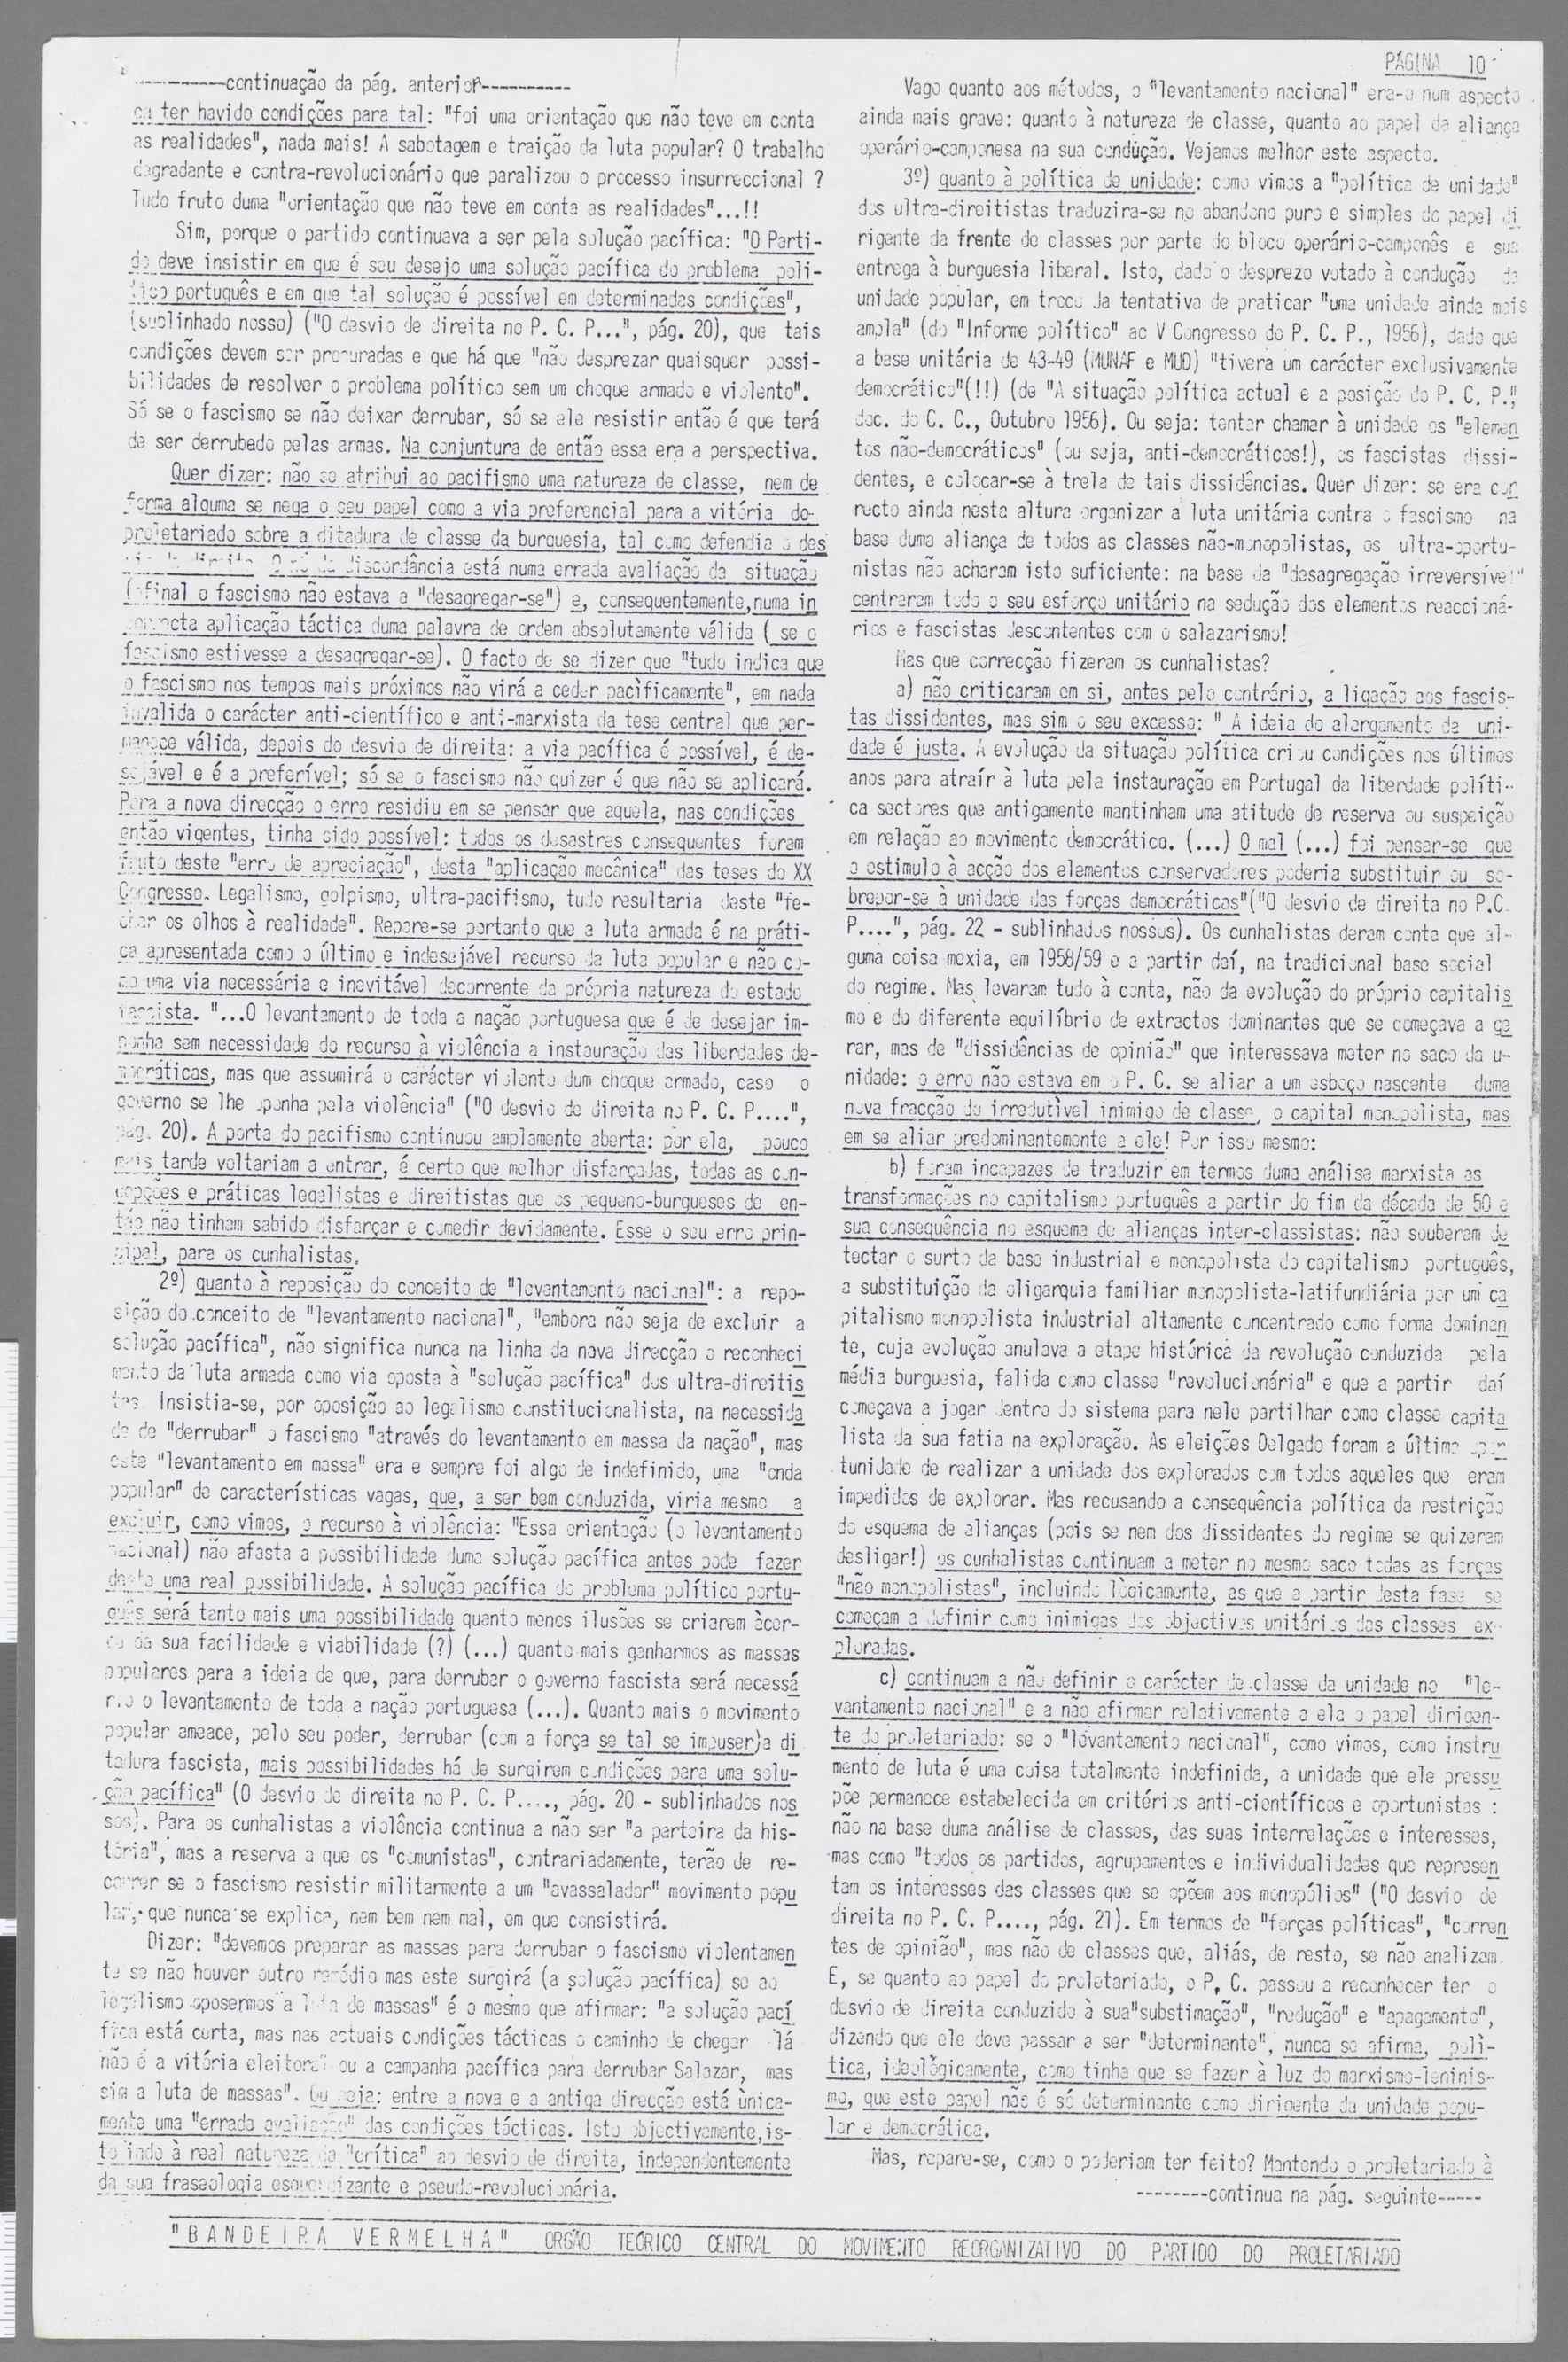 PÁGINA 10
----------continuação da pág. anterior----------
ca ter havido condições para tal: "foi uma orientação que não teve em conta
as realidades", nada mais! A sabotagem e traição da luta popular? O trabalho
degradante e contra-revolucionário que paralizou o processo insurreccional ?
Tudo fruto duma "orientação que não teve em conta as realidades"...!!
Sim, porque o partido continuava a ser pela solução pacífica: "O Parti-
do deve insistir em que é seu desejo uma solução pacífica do problema polí-
tico português e em que tal solução é possível em determinadas condições",
(sublinhado nosso) ("O desvio de direita no P. C. P...", pág. 20), que tais
condições devem ser procuradas e que há que "não desprezar quaisquer possi-
bilidades de resolver o problema político sem um choque armado e violento".
Só se o fascismo se não deixar derrubar, só se ele resistir então é que terá
de ser derrubado pelas armas. Na conjuntura de então essa era a perspectiva.
Quer dizer: não se atribui ao pacifismo uma natureza de classe, nem de
forma alguma se nega o seu papel como a via preferencial para a vitória do
proletariado sobre a ditadura de classe da burguesia, tal como defendia o des
discordância está numa errada avaliação da situação
(afinal o fascismo não estava a "desagregar-se") e, consequentemente, numa in
correcta aplicação táctica duma palavra de ordem absolutamente válida ( se o
fascismo estivesse a desagregar-se). O facto de se dizer que "tudo indica que
o fascismo nos tempos mais próximos não virá a ceder pacìficamente", em nada
invalida o carácter anti-científico e anti-marxista da tese central que per-
manece válida, depois do desvio de direita: a via pacífica é possível, é de-
sejável e é a preferível; só se o fascismo não quizer é que não se aplicará.
Para a nova direcção o erro residiu em se pensar que aquela, nas condições
então vigentes, tinha sido possível: todos os desastres consequentes foram
fruto deste "erro de apreciação", desta "aplicação mecânica" das teses do XX
Congresso. Legalismo, golpismo, ultra-pacifismo, tudo resultaria deste "fe-
char os olhos à realidade". Repare-se portanto que a luta armada é na práti-
ca apresentada como o último e indesejável recurso da luta popular e não co-
mo uma via necessária e inevitável decorrente da própria natureza do estado
fascista. "...O levantamento de toda a nação portuguesa que é de desejar im-
ponha sem necessidade do recurso à violência a instauração das liberdades de-
mocráticas, mas que assumirá o carácter violento dum choque armado, caso o
governo se lhe oponha pela violência" ("O desvio de direita no P. C. P....",
pág. 20). A porta do pacifismo continuou amplamente aberta: por ela, pouco
mais tarde voltariam a entrar, é certo que melhor disfarçadas, todas as con-
cepções e práticas legalistas e direitistas que os pequeno-burgueses de en-
tão não tinham sabido disfarçar e comedir devidamente. Esse o seu erro prin-
cipal, para os cunhalistas.
2º) quanto à reposição do conceito de "levantamento nacional": a repo-
sição do conceito de "levantamento nacional", "embora não seja de excluir a
solução pacífica", não significa nunca na linha da nova direcção o reconheci
mento da luta armada como via oposta à "solução pacífica" dos ultra-direitis
tas. Insistia-se, por oposição ao legalismo constitucionalista, na necessida
de de "derrubar" o fascismo "através do levantamento em massa da nação", mas
este "levantamento em massa" era e sempre foi algo de indefinido, uma "onda
popular" de características vagas, que, a ser bem conduzida, viria mesmo a
excluir, como vimos, o recurso à violência: "Essa orientação (o levantamento
nacional) não afasta a possibilidade duma solução pacífica antes pode fazer
desta uma real possibilidade. A solução pacífica do problema político portu-
guês será tanto mais uma possibilidade quanto menos ilusões se criarem àcer-
ca da sua facilidade e viabilidade (?) (...) quanto mais ganharmos as massas
populares para a ideia de que, para derrubar o governo fascista será necessá
rio o levantamento de toda a nação portuguesa (...). Quanto mais o movimento
popular ameace, pelo seu poder, derrubar (com a força se tal se impuser)a di
tadura fascista, mais possibilidades há de surgirem condições para uma solu-
ção pacífica" (O desvio de direita no P. C. P...., pág. 20 - sublinhados nos
sos). Para os cunhalistas a violência continua a não ser "a parteira da his-
tória", mas a reserva a que os "comunistas", contrariadamente, terão de re-
correr se o fascismo resistir militarmente a um "avassalador" movimento popu
lar, que nunca se explica, nem bem nem mal, em que consistirá.
Dizer: "devemos preparar as massas para derrubar o fascismo violentamen
te se não houver outro remédio mas este surgirá (a solução pacífica) se ao
legalismo oposermos a luta de massas" é o mesmo que afirmar: "a solução pací
fica está certa, mas nas actuais condições tácticas o caminho de chegar lá
não é a vitória eleitoral ou a campanha pacífica para derrubar Salazar, mas
sim a luta de massas". Ou seja: entre a nova e a antiga direcção está ùnica-
mente uma "errada avaliação" das condições tácticas. Isto objectivamente, is-
to indo à real natureza da "crítica" ao desvio de direita, independentemente
da sua fraseologia esquerdizante e pseudo-revolucionária.
Vago quanto aos métodos, o "levantamento nacional" era-o num aspecto
ainda mais grave: quanto à natureza de classe, quanto ao papel da aliança
operário-camponesa na sua condução. Vejamos melhor este aspecto.
3º) quanto à política de unidade: como vimos a "política de unidade"
dos ultra-direitistas traduzira-se no abandono puro e simples do papel di
rigente da frente de classes por parte do bloco operário-camponês e sua
entrega à burguesia liberal. Isto, dado o desprezo votado à condução da
unidade popular, em troca da tentativa de praticar "uma unidade ainda mais
ampla" (do "Informe político" ao V Congresso do P. C. P., 1956), dado que
a base unitária de 43-49 (MUNAF e MUD) "tivera um carácter exclusivamente
democrático"(!!) (de "A situação política actual e a posição do P. C. P.",
doc. do C. C., Outubro 1956). Ou seja: tentar chamar à unidade os "elemen
tos não-democráticos" (ou seja, anti-democráticos!), os fascistas dissi-
dentes, e colocar-se à trela de tais dissidências. Quer dizer: se era cor
recto ainda nesta altura organizar a luta unitária contra o fascismo na
base duma aliança de todas as classes não-monopolistas, os ultra-oportu-
nistas não acharam isto suficiente: na base da "desagregação irreversível"
centraram todo o seu esforço unitário na sedução dos elementos reaccioná-
rios e fascistas descontentes com o salazarismo!
Mas que correcção fizeram os cunhalistas?
a) não criticaram em si, antes pelo contrário, a ligação aos fascis-
tas dissidentes, mas sim o seu excesso: " A ideia do alargamento da uni-
dade é justa. A evolução da situação política criou condições nos últimos
anos para atraír à luta pela instauração em Portugal da liberdade políti-
ca sectores que antigamente mantinham uma atitude de reserva ou suspeição
em relação ao movimento democrático. (...) O mal (...) foi pensar-se que
o estimulo à acção dos elementos conservadores poderia substituir ou so-
brepor-se à unidade das forças democráticas"("O desvio de direita no P.C.
P....", pág. 22 - sublinhados nossos). Os cunhalistas deram conta que al-
guma coisa mexia, em 1958/59 e a partir daí, na tradicional base social
do regime. Mas levaram tudo à conta, não da evolução do próprio capitalis
mo e do diferente equilíbrio de extractos dominantes que se começava a ge
rar, mas de "dissidências de opinião" que interessava meter no saco da u-
nidade: o erro não estava em o P. C. se aliar a um esboço nascente duma
nova fracção do irredutìvel inimigo de classe, o capital monopolista, mas
em se aliar predominantemente a ele! Por isso mesmo:
b) foram incapazes de traduzir em termos duma análise marxista as
transformações no capitalismo português a partir do fim da década de 50 e
sua consequência no esquema de alianças inter-classistas: não souberam de
tectar o surto da base industrial e monopolista do capitalismo português,
a substituição da oligarquia familiar monopolista-latifundiária por um ca
pitalismo monopolista industrial altamente concentrado como forma dominan
te, cuja evolução anulava a etapa histórica da revolução conduzida pela
média burguesia, falida como classe "revolucionária" e que a partir daí
começava a jogar dentro do sistema para nele partilhar como classe capita
lista da sua fatia na exploração. As eleições Delgado foram a última opor
tunidade de realizar a unidade dos explorados com todos aqueles que eram
impedidos de explorar. Mas recusando a consequência política da restrição
do esquema de alianças (pois se nem dos dissidentes do regime se quizeram
desligar!) os cunhalistas continuam a meter no mesmo saco todas as forças
"não monopolistas", incluindo lògicamente, as que a partir desta fase se
começam a definir como inimigas dos objectivos unitários das classes ex-
ploradas.
c) continuam a não definir o carácter de classe da unidade no "le-
vantamento nacional" e a não afirmar relativamente a ela o papel dirigen-
te do proletariado: se o "levantamento nacional", como vimos, como instru
mento de luta é uma coisa totalmente indefinida, a unidade que ele pressu
põe permanece estabelecida em critérios anti-científicos e oportunistas :
não na base duma análise de classes, das suas interrelações e interesses,
mas como "todos os partidos, agrupamentos e individualidades que represen
tam os interesses das classes que se opõem aos monopólios" ("O desvio de
direita no P. C. P...., pág. 21). Em termos de "forças políticas", "corren
tes de opinião", mas não de classes que, aliás, de resto, se não analizam.
E, se quanto ao papel do proletariado, o P. C. passou a reconhecer ter o
desvio de direita conduzido à sua"substimação", "redução" e "apagamento",
dizendo que ele deve passar a ser "determinante", nunca se afirma, polì-
tica, ideològicamente, como tinha que se fazer à luz do marxismo-leninis-
mo, que este papel não é só determinante como dirigente da unidade popu-
lar e democrática.
Mas, repare-se, como o poderiam ter feito? Mantendo o proletariado à
--------continua na pág. seguinte-----
"BANDEIRA VERMELHA" ORGÃO TEÓRICO CENTRAL DO MOVIMENTO REORGANIZATIVO DO PARTIDO DO PROLETARIADO